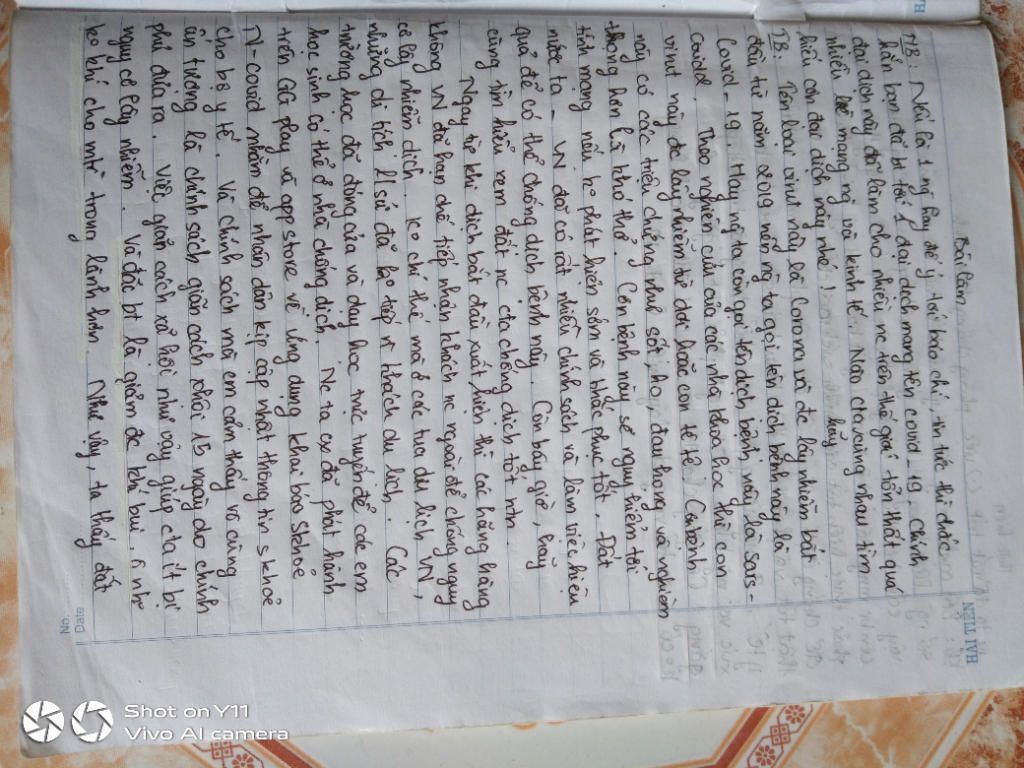 HẢI TIẾN
Date
No
Bài làm
MB: Nếu là 1 ng hay để ý tới báo chí, tin tức thì chắc
hẳn bạn đã bt tới 1 đại dịch mang tên covid-19. Chính
đại dịch này đã làm cho nhiều nc trên thế giới tổn thất quá
nhiều về mạng ng và kinh tế. Nào cta cùng nhau tìm
hiểu con đại dịch này nhé!
TB: Tên loại virut này là Corona và đc lây nhiễm bắt
đầu từ năm 2019 nên ng ta gọi tên dịch bệnh này là
Covid-19. Hay ng ta còn gọi tên dịch bệnh này là sars-
Covid2. Theo nghiên cứu của các nhà khoa học thì con
virut này đc lây nhiễm từ dơi hoặc con tê tê. Canbệnh
này có các triệu chứng như sốt, ho, đau họng và nghiêm
trọng hơn là khó thở. Cơn bệnh này sẽ nguy hiểm tới
tính mạng nếu ko phát hiện sớm và khắc phục tốt. Đất
nước ta - VN đã có rất nhiều chính sách và làm việc hiệu
quả để có thể chống dịch bệnh này. Còn bây giờ, hãy
cùng tìm hiểu xem đất nc cta chống dịch tốt ntn.
Ngay từ khi dịch bắt đầu xuất hiện thì các hãng hàng
không VN đã hạn chế tiếp nhận khách nc ngoài để chống nguy
cơ lây nhiễm dịch. Ko chỉ thế mà ở các tua du lịch VN,
những di tích l sử đã ko tiếp n khách du lịch. Các
trường học đã đóng cửa và dạy học trực tuyến để các em
học sinh có thể ở nhà chống dịch. Nc ta cx đã phát hành
trên GG play và app store về ứng dụng khai báo skhoẻ
N-covid nhằm để nhân dân kịp cập nhật thông tin skhoẻ
cho bộ y tế. Và chính sách mà em cảm thấy vô cùng
ấn tượng là chính sách giãn cách xhội 15 ngày do chính
phủ đưa ra. Việc giãn cách xã hội như vậy giúp cta ít bị
nguy cơ lây nhiễm. Và đặc bt là giảm đc khí bụi, ô nh
ko khí cho mtr trong lành hơn. Như vậy, ta thấy đất
Shot on Y11
Vivo AI camera